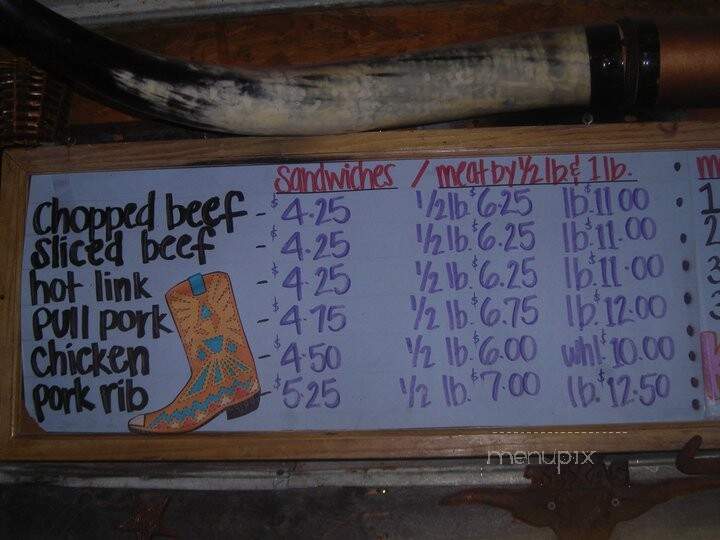 sandwiches / meat by 1/2 lb & 1 lb.
chopped beef - $4.25 1/2 lb. $6.25 lb. $11.00
sliced beef - $4.25 1/2 lb. $6.25 lb. $11.00
hot link - $4.25 1/2 lb. $6.25 lb. $11.00
pull pork - $4.75 1/2 lb. $6.75 lb. $12.00
chicken - $4.50 1/2 lb. $6.00 whl. $10.00
pork rib - $5.25 1/2 lb. $7.00 lb. $12.50
menupix